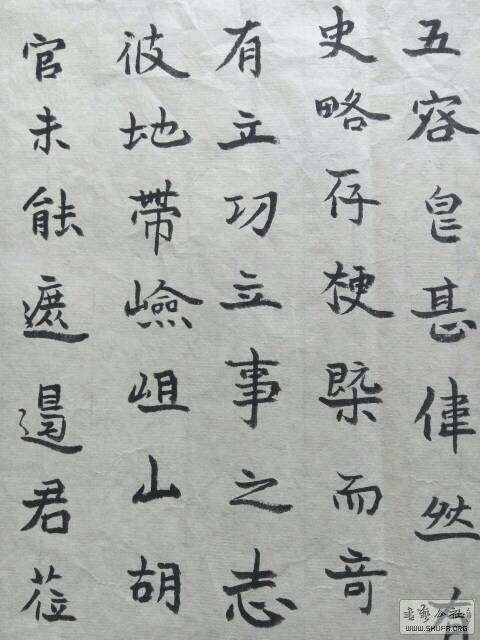 五容皃甚偉然
史略存梗槩而奇
有立功立事之志
彼地帶嶮岨山胡
官未能遮遏君莅
书艺公社
WWW.SHUFA.ORG